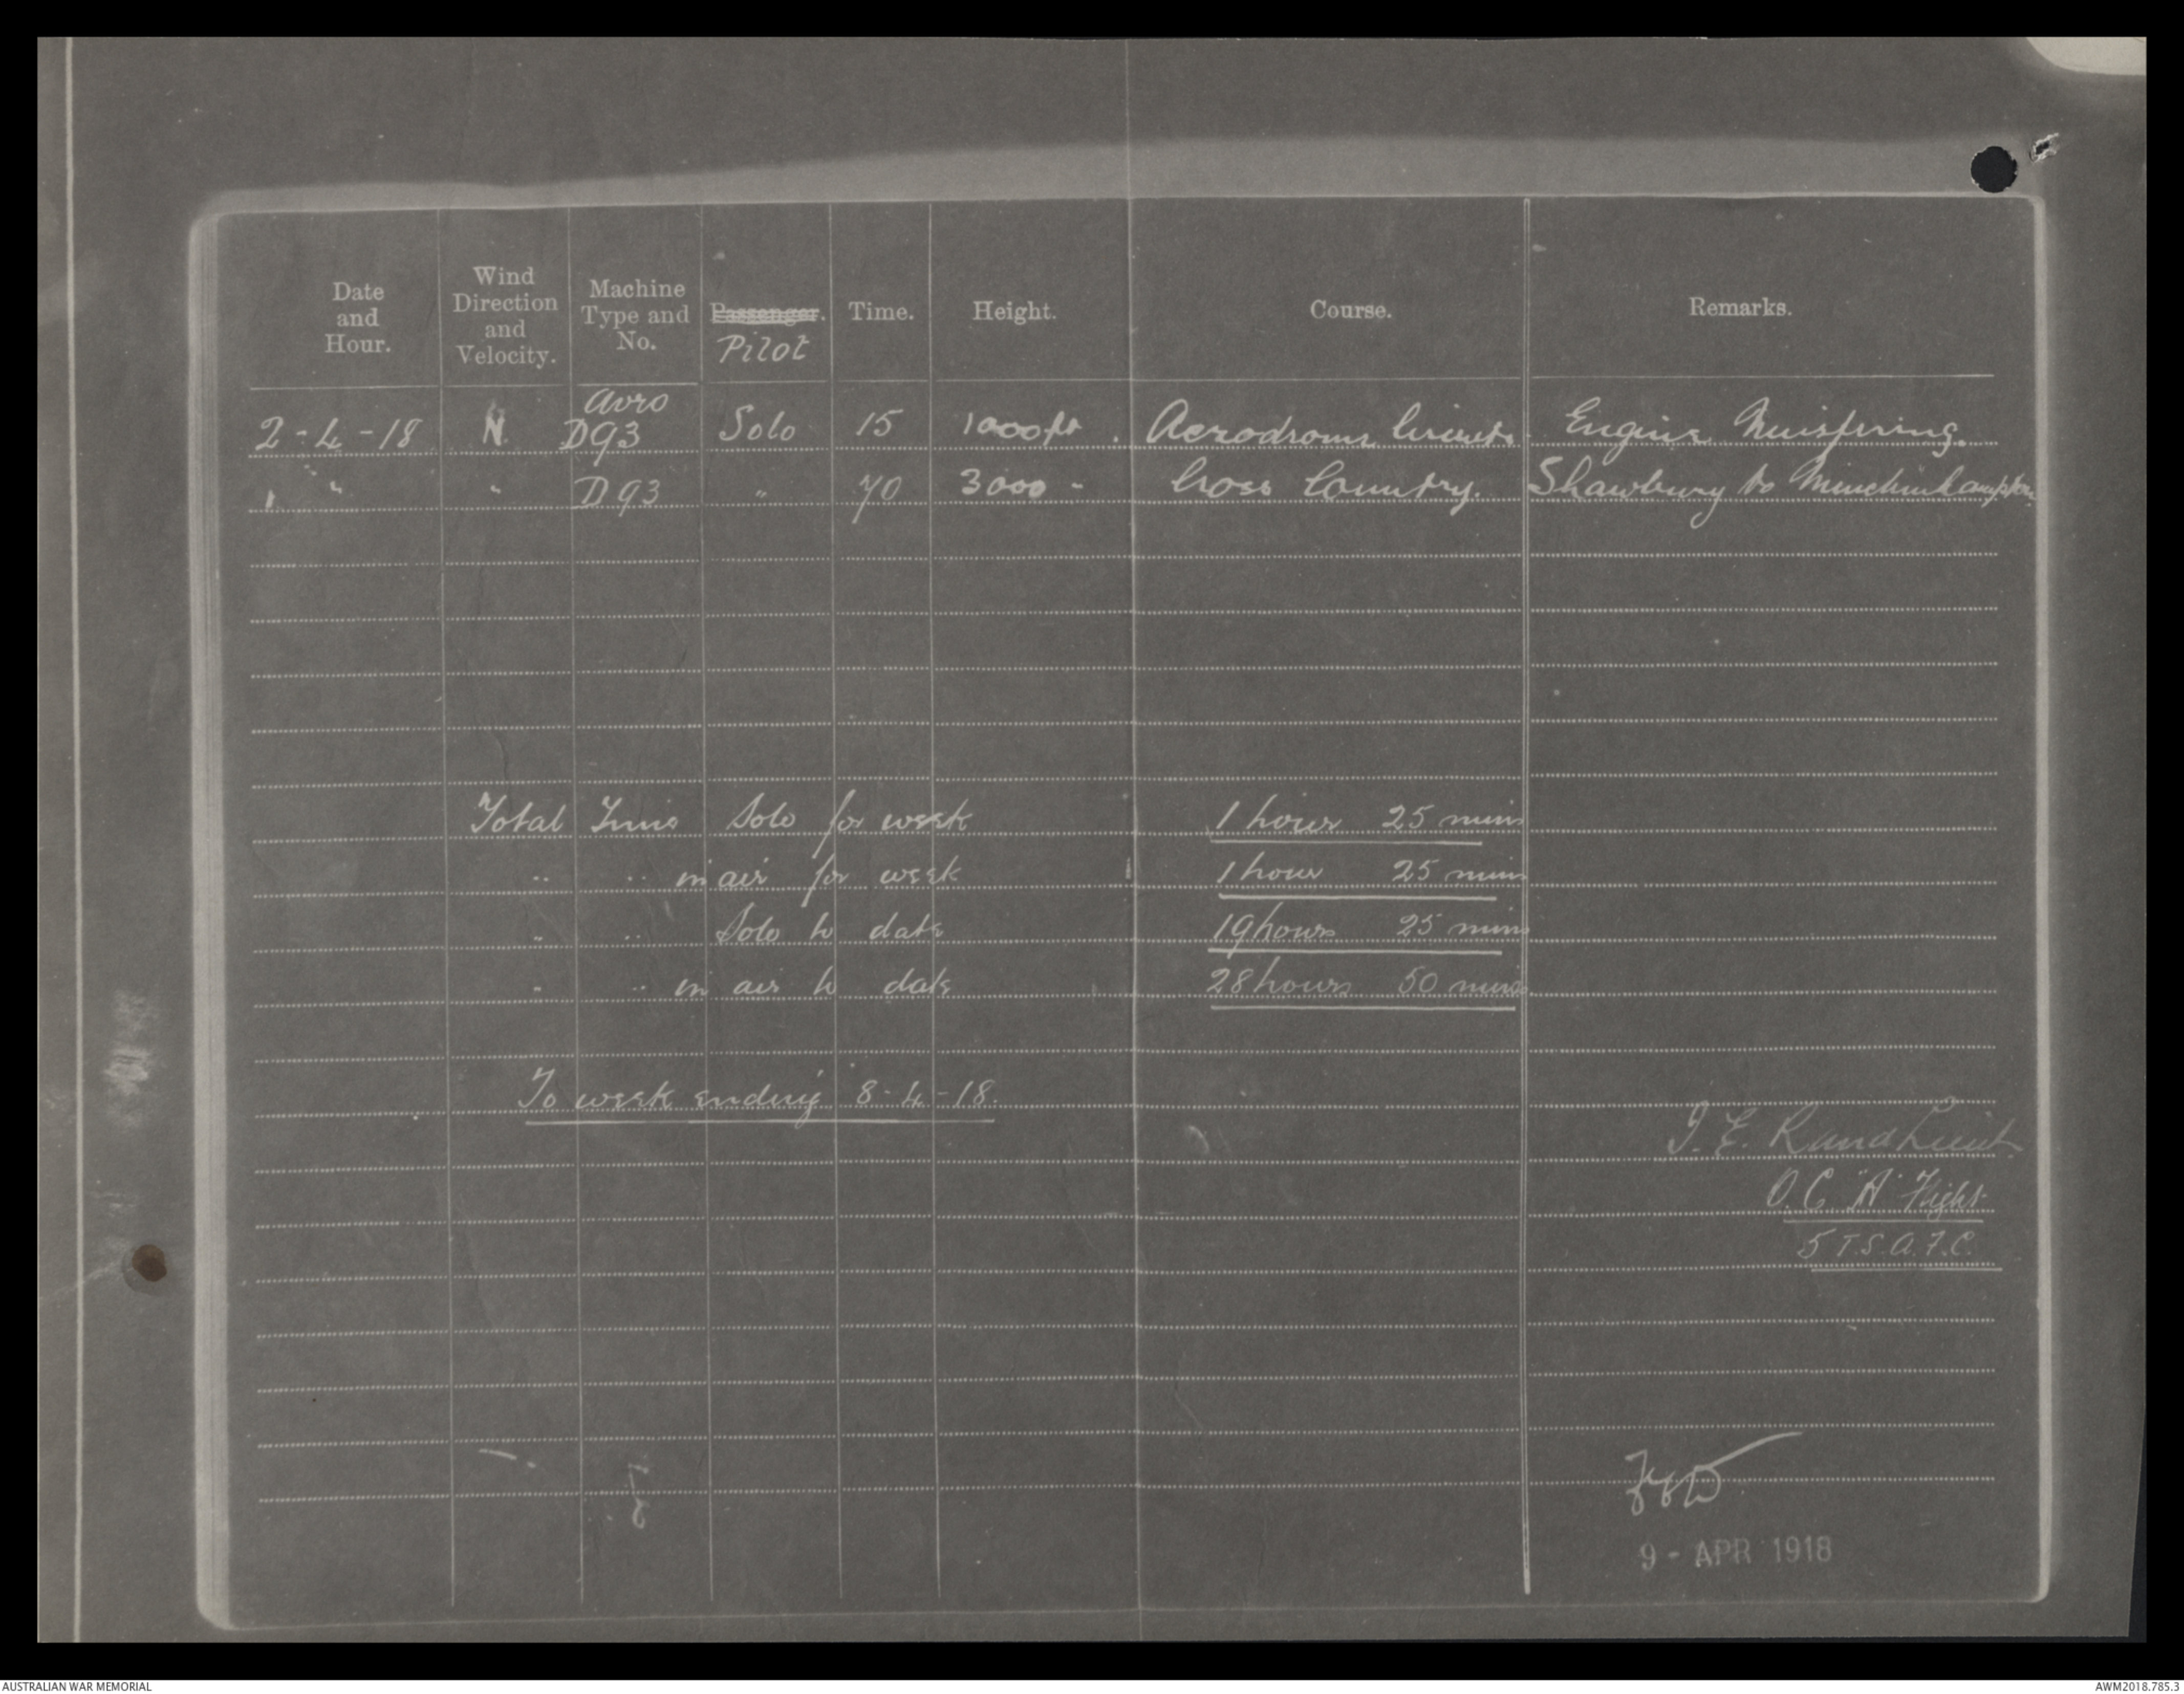 Date and Hour. Wind Direction and Velocity. Machine Type and No. Passenger. Pilot Time. Height. Course. Remarks.
2-4-18 N. Avro D93 Solo 15 1000 ft. Aerodrome Circuits Engine Missfiring.
" " " D93 " 70 3000 " Cross Country. Shawbury to Minchinhampton
Total Time Solo for week 1 hour 25 mins
" " in air for week 1 hour 25 mins
" " Solo to date 19 hours 25 mins
" " in air to date 28 hours 50 mins
To week ending 8-4-18.
Lieut.
O.C. "A" Flight
5 T.S. A.F.C.
9 - APR 1918
AUSTRALIAN WAR MEMORIAL
AWM2018.785.3